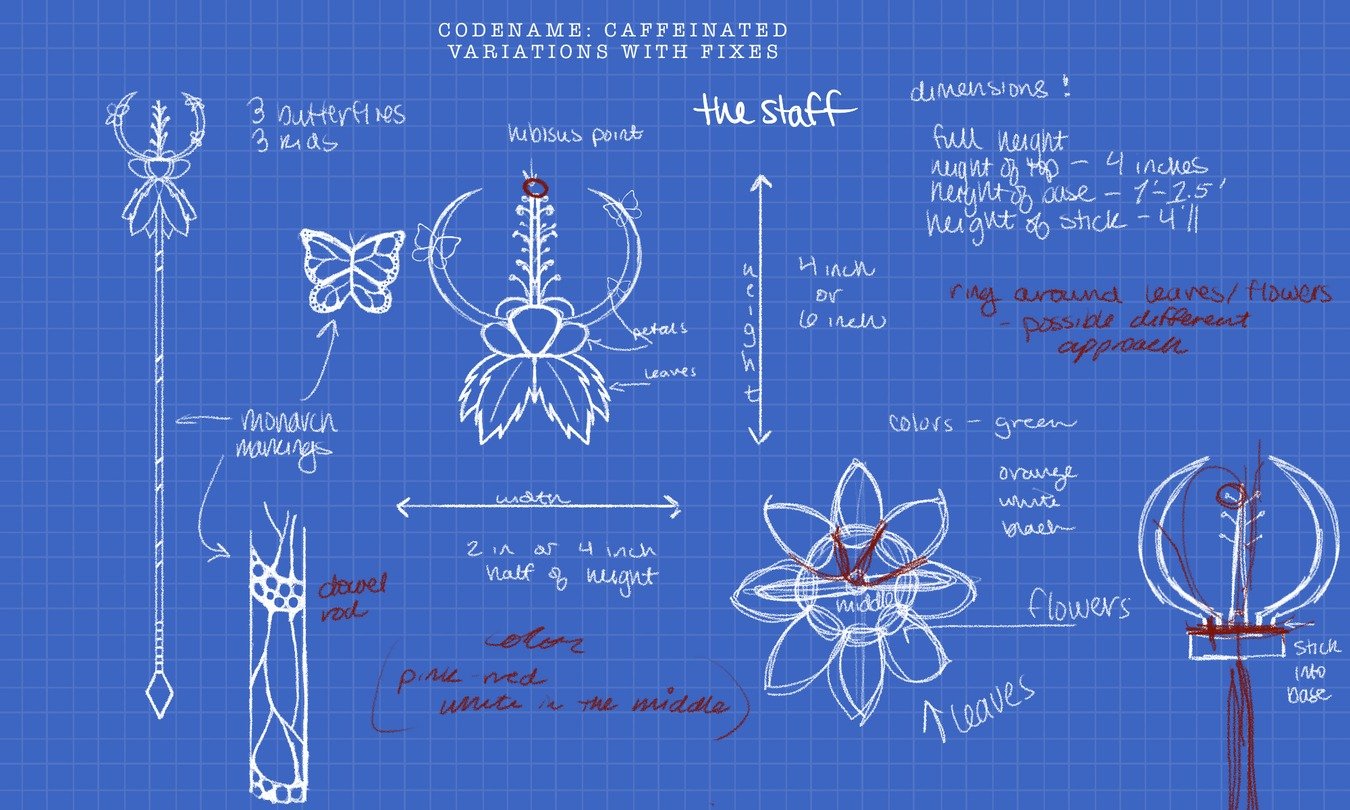 CODENAME: CAFFEINATED
VARIATIONS WITH FIXES
3 butterflies
3 kids
hibisus point
the staff
dimensions !
full height
height of top - 4 inches
height of base - 1'-1.5'
height of stick - 4'11
petals
leaves
height
4 inch
or
6 inch
ring around leaves/flowers
- possible different
approach
monarch
markings
colors - green
orange
white
black
width
2 in or 4 inch
half of height
dowel
rod
color
pink-red
white in the middle
middle
flowers
leaves
stick
into
base